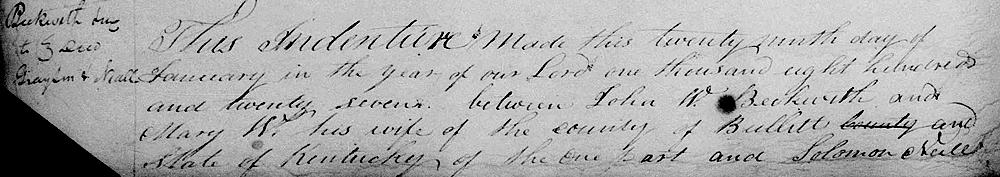 Beckwith &
to } Deed
Grayham & Neall
This Indenture Made this twenty ninth day of
January in the year of our Lord one thousand eight hundred
and twenty seven between John W. Beckwith and
Mary W. his wife of the county of Bullitt county and
State of Kentucky of the one part and Solomon Neall